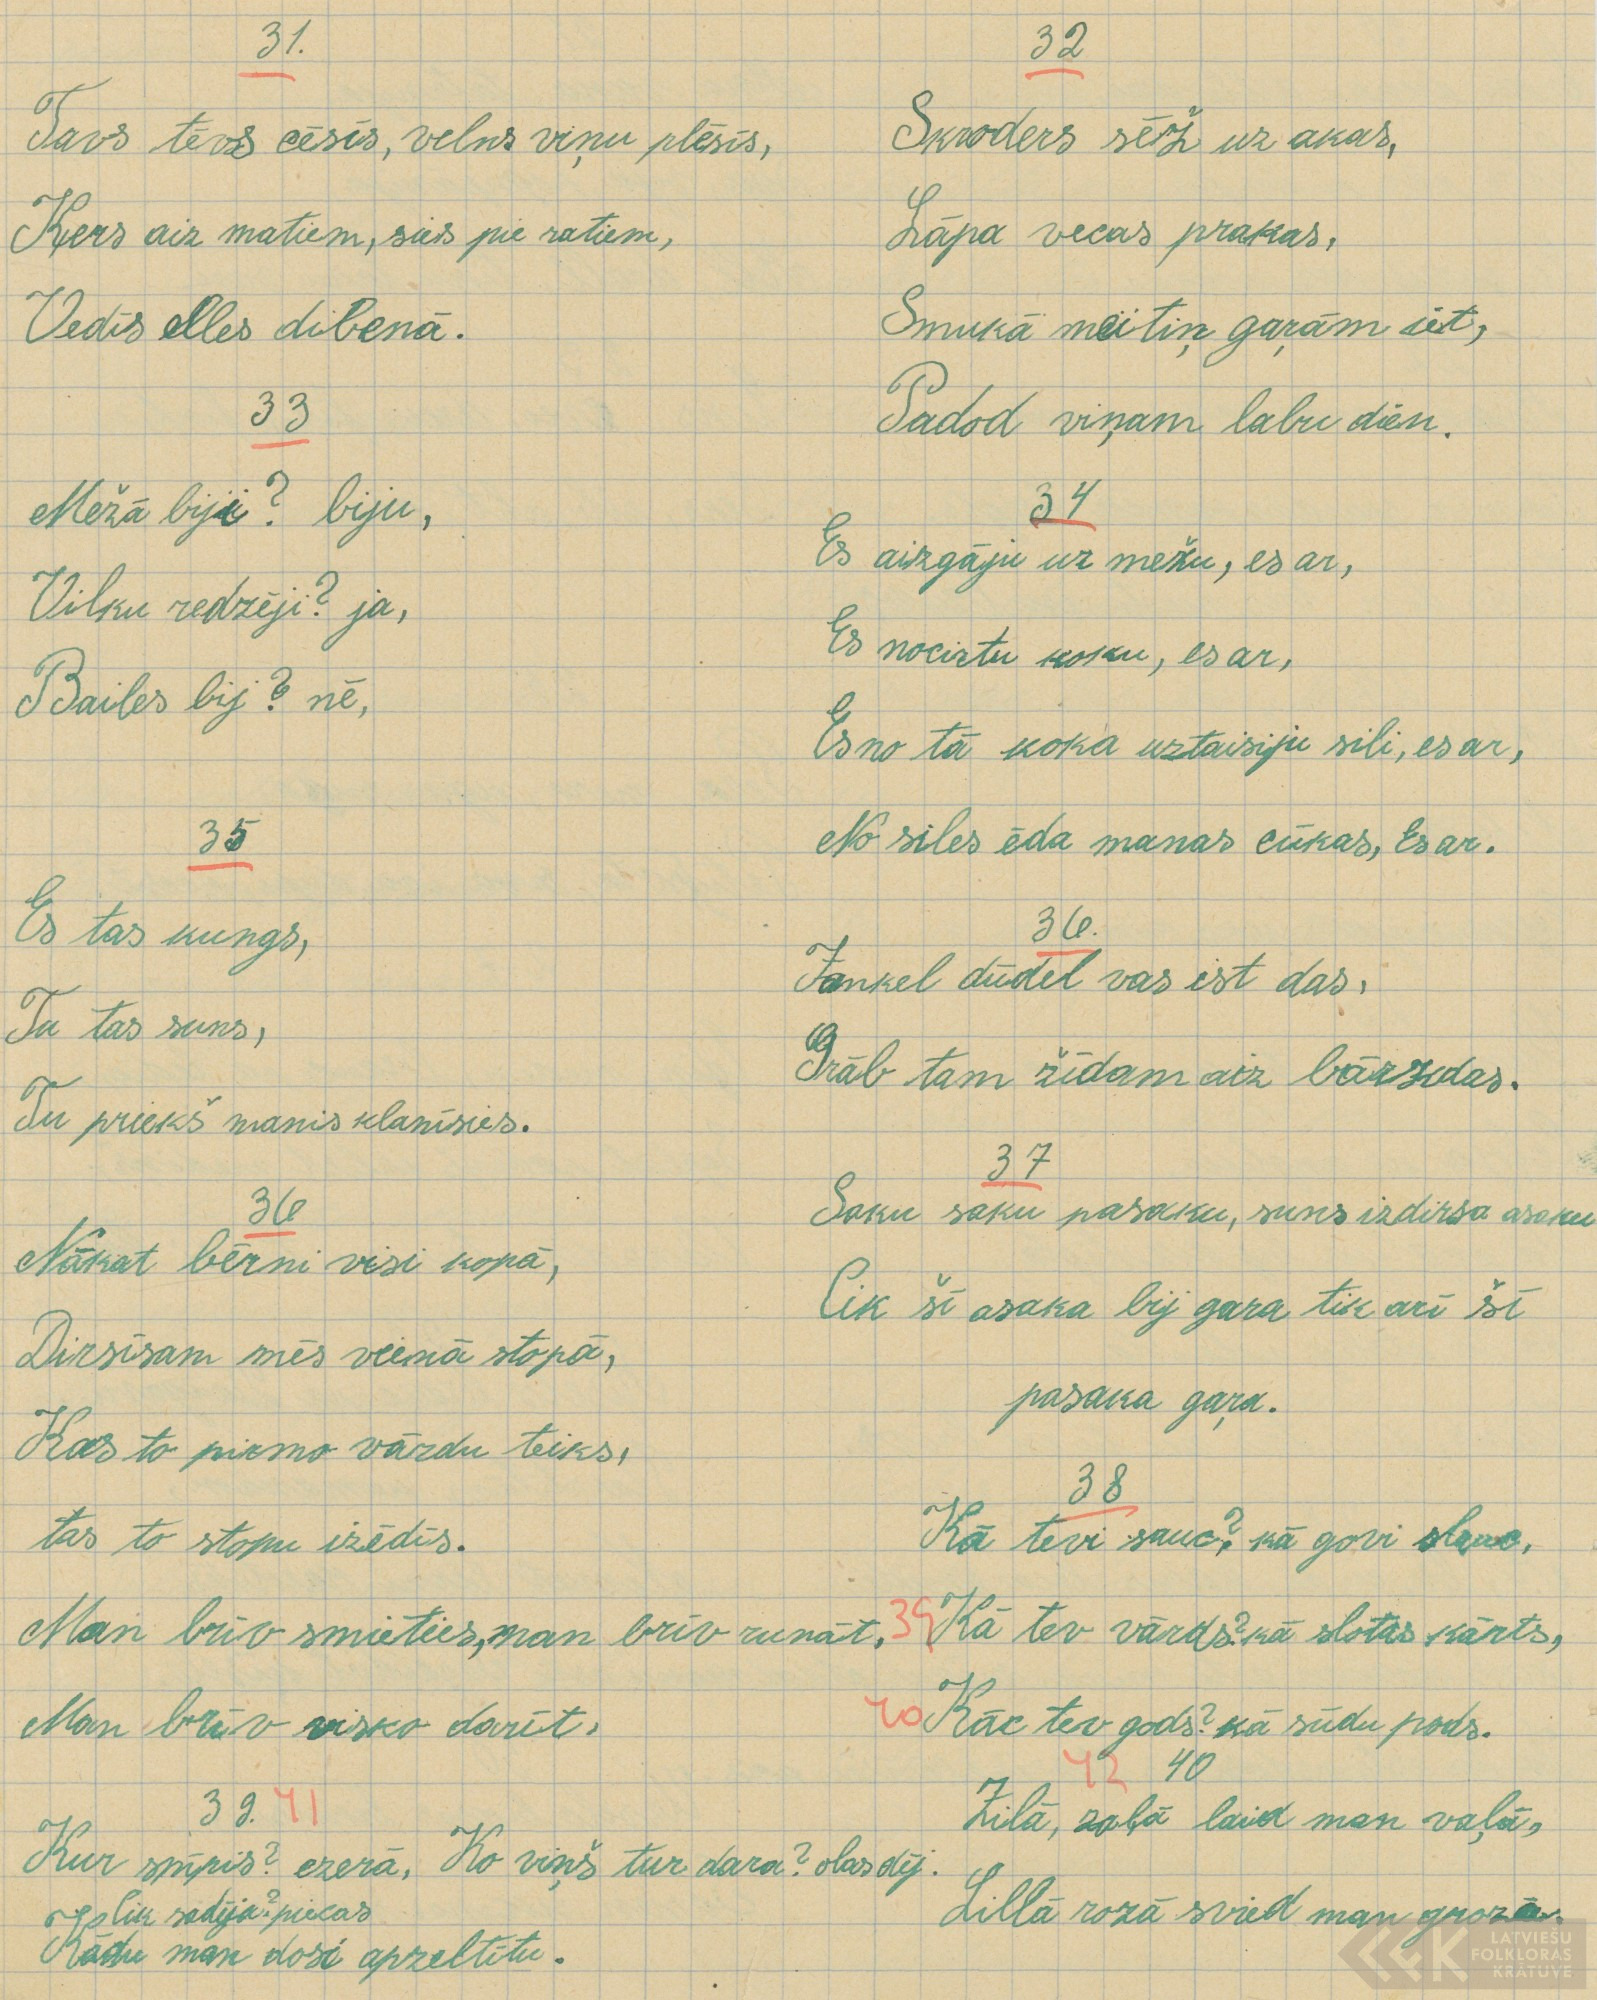 31.
Tavs tēvs cēsīs, velns viņu plēsīs,
Ķers aiz matiem, sies pie ratiem,
Vedīs elles dibenā.
32
Skroders sēž uz akas,
Lāpa vecas prakas,
Smukā meitiņ gaŗām iet,
Padod viņam labu dien.
33
Mežā biji? biju,
Vilku redzēji? ja,
Bailes bij? nē,
34
Es aizgāju uz mežu, es ar,
Es nocirtu koku, es ar,
Es no tā koka uztaisiju sili, es ar,
No siles ēda manas cūkas, Es ar.
35
Es tas kungs,
Tu tas suns,
Tu priekš manis klanīsies.
36.
Jankel dūdel vas ist das,
Grāb tam žīdam aiz bārzdas.
36
Nākat bērni visi kopā,
Dirsīsam mēs vienā stopā,
Kas to pirmo vārdu teiks,
tas to stopu izēdīs.
Man brīv smieties, man brīv runāt,
Man brīv visko darīt,
37
Saku saku pasaku, suns izdirsa asaku
Cik šī asaka bij gara tik arī šī
pasaka gaŗa.
38
Kā tevi sauc? kā govi slauc,
39 Kā tev vārds? kā slotas kārts,
40 Kāc tev gods? kā sūdu pods.
39. 41
Kur snīpis? ezerā, Ko viņš tur dara? olas dēj.
Cik sadēja? piecas
Kādu man dosi apzeltītu.
42 40
Zilā, zaļā laid man vaļā,
Lillā rozā svied man grozā.
LATVIEŠU
FOLKLORAS
KRĀTUVE